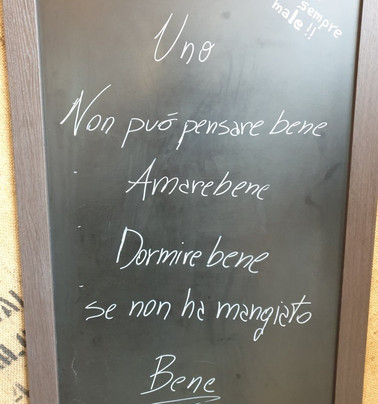 sempre
male!!
Uno
Non puó pensare bene
Amare bene
Dormire bene
se non ha mangiato
Bene